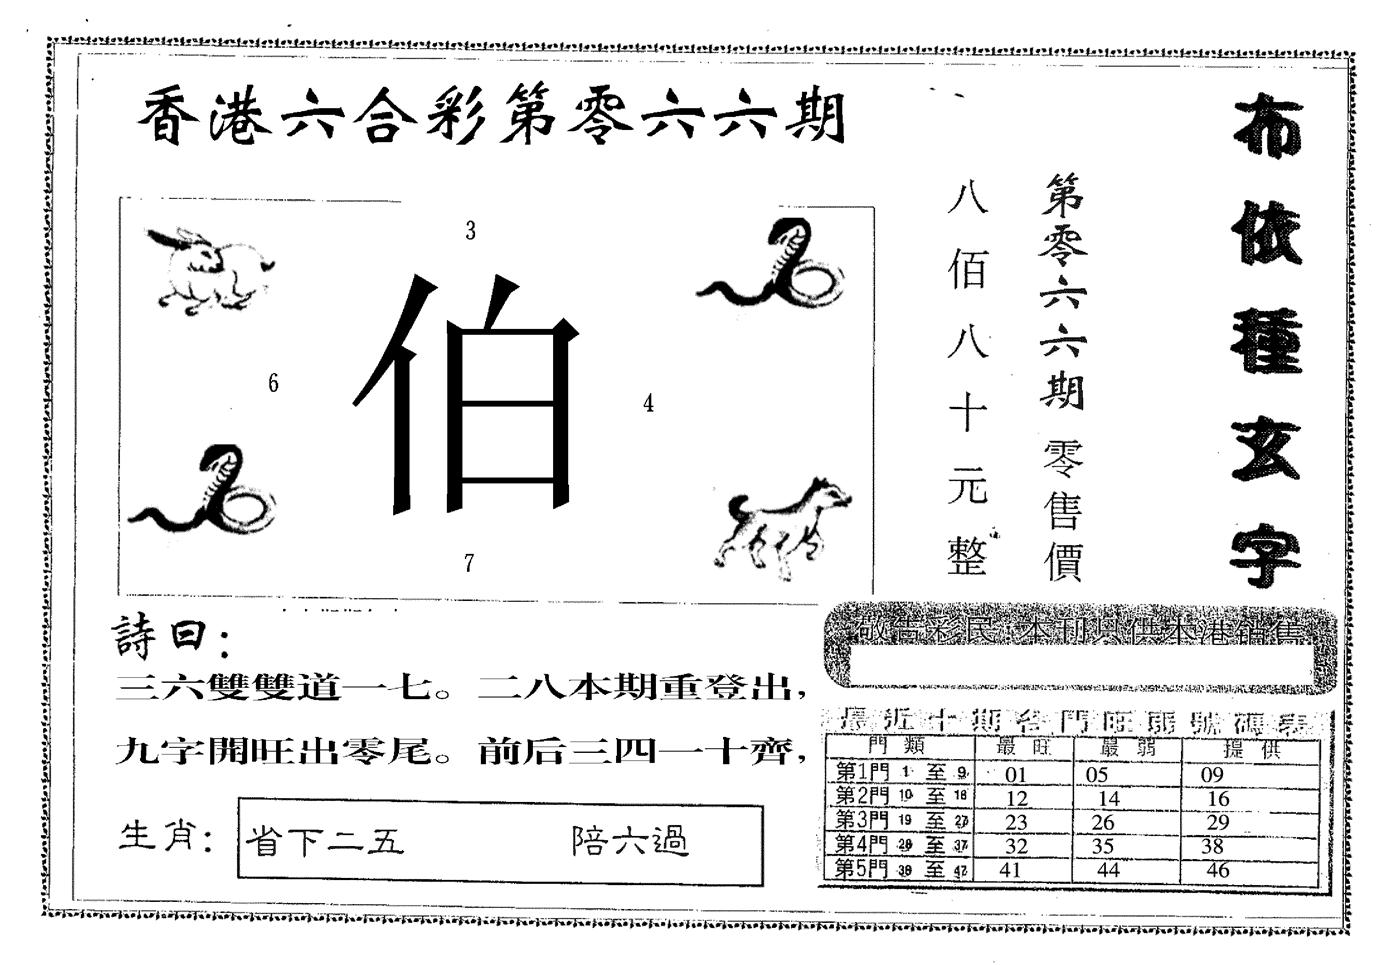 香港六合彩第零六六期
布依種玄字
第零六六期零售價
八佰八十元整
3
伯
6
4
7
詩曰：
三六雙雙道一七。二八本期重登出，
九字開旺出零尾。前后三四一十齊，
生肖：省下二五 陪六過
敬告彩民：本刊只供本港銷售
最近十期各門旺弱號碼表
門類 最旺 最弱 提供
第1門 1 至 9 01 05 09
第2門 10 至 18 12 14 16
第3門 19 至 27 23 26 29
第4門 28 至 37 32 35 38
第5門 38 至 47 41 44 46